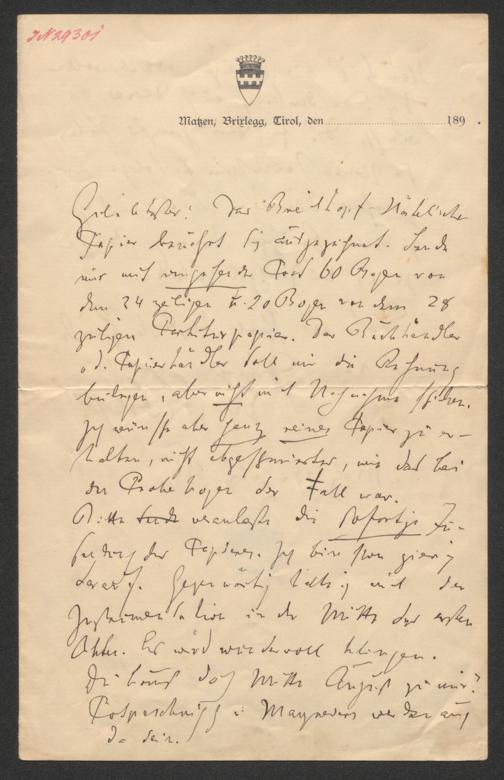 JN 29301
Matzen, Brixlegg, Tirol, den 189 .
Geliebter! Das Breitkopf-Härtel'sche
Papier bewährt sich ausgezeichnet. Sende
mir mit umgehender Post 60 Bogen von
dem 24 zeiligen u. 20 Bogen von dem 28
zeiligen Partiturpapier. Der Buchhändler
od. Papierhändler soll mir die Rechnung
beilegen, aber nicht mit Nachnahme schicken.
Ich wünsche aber ganz reines Papier zu er-
halten, nicht abgeschmiertes, wie das bei
den Probebogen der Fall war.
Bitte veranlasse die sofortige Zu-
sendung des Papieres. Ich bin schon gierig
darauf. Gegenwärtig halte ich mit der
Instrumentation in der Mitte des ersten
Aktes. Es wird wundervoll klingen.
Du kommst doch Mitte August zu mir?
Potpeschnigg u. Mayreders werden auch
da sein.